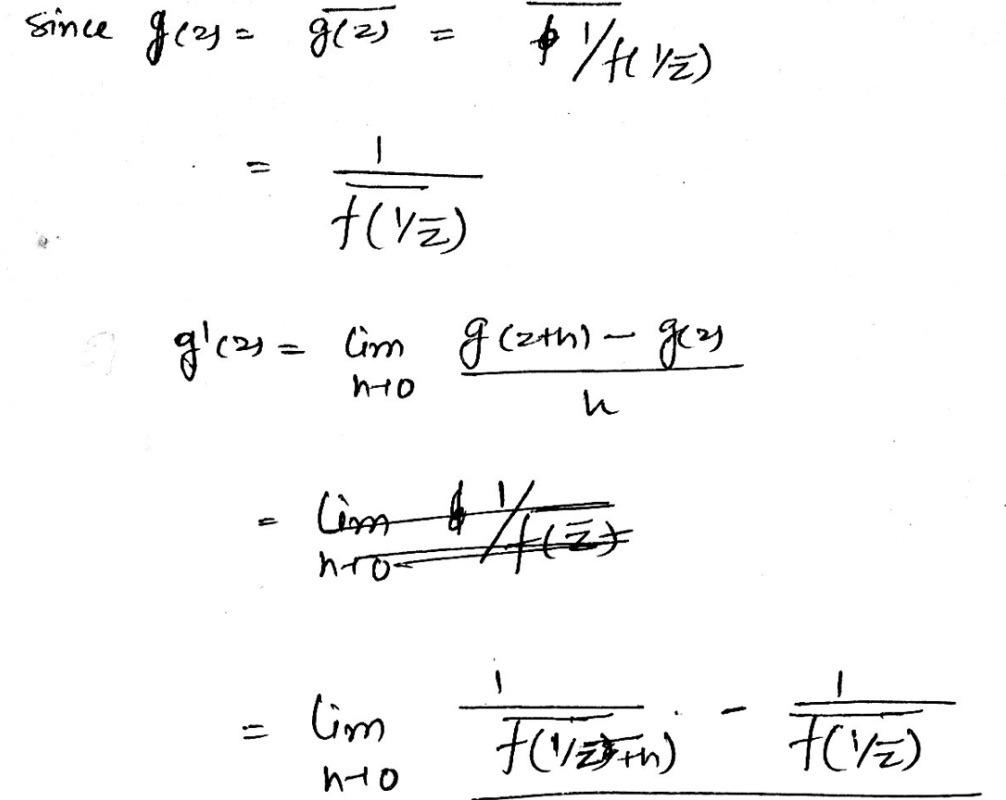 since g(z) = \overline{g(z)} = \overline{1/f(1/\overline{z})}
= \frac{1}{\overline{f(1/\overline{z})}}
g'(z) = lim_{h→0} \frac{g(z+h) - g(z)}{h}
= lim_{h→0} 1/\overline{f(\overline{z})}
= lim_{h→0} \frac{1}{\overline{f(1/\overline{z}+h)}} - \frac{1}{\overline{f(1/\overline{z})}}